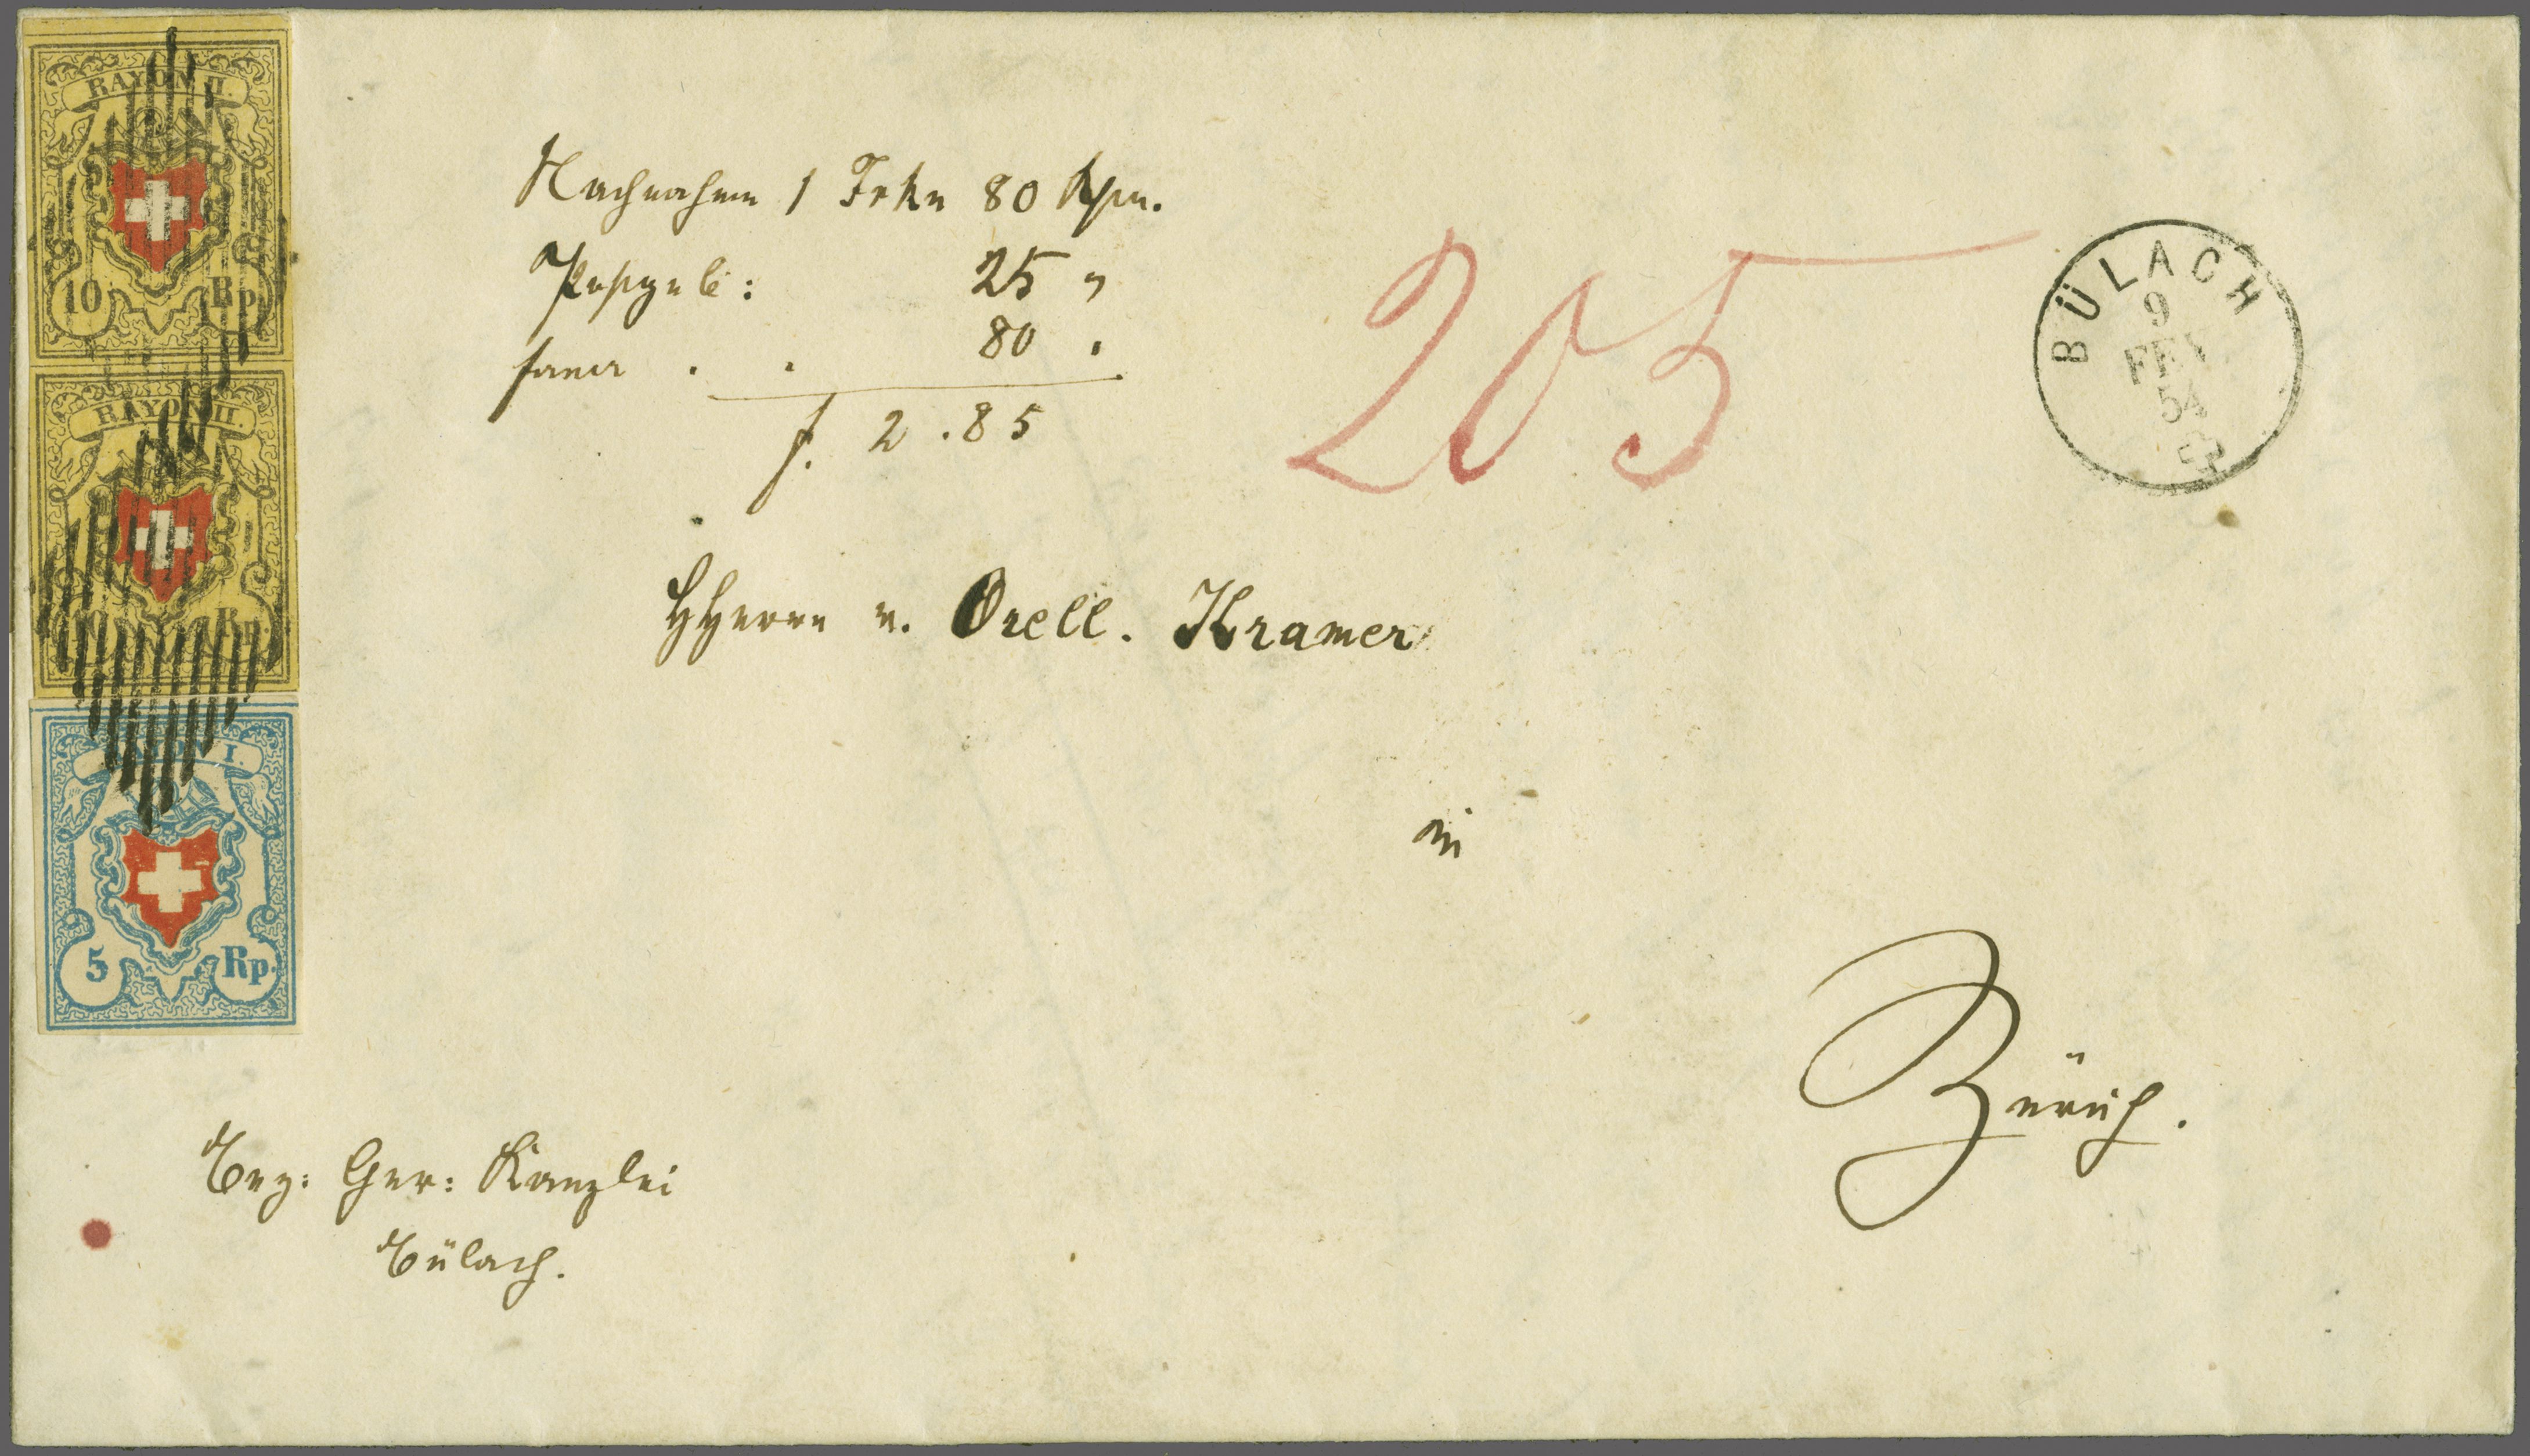 RAYON II.
10 Rp.
RAYON II.
10 Rp.
RAYON I.
5 Rp.
Nachnahme 1 Frkn 80 Rpn.
Postgeb: 25 "
80 "
f. 2.85
205
BÜLACH
9
FEV
54
HHerren v. Orell. Kramer
in
Zürich.
Bez: Ger: Kanzlei
Bülach.